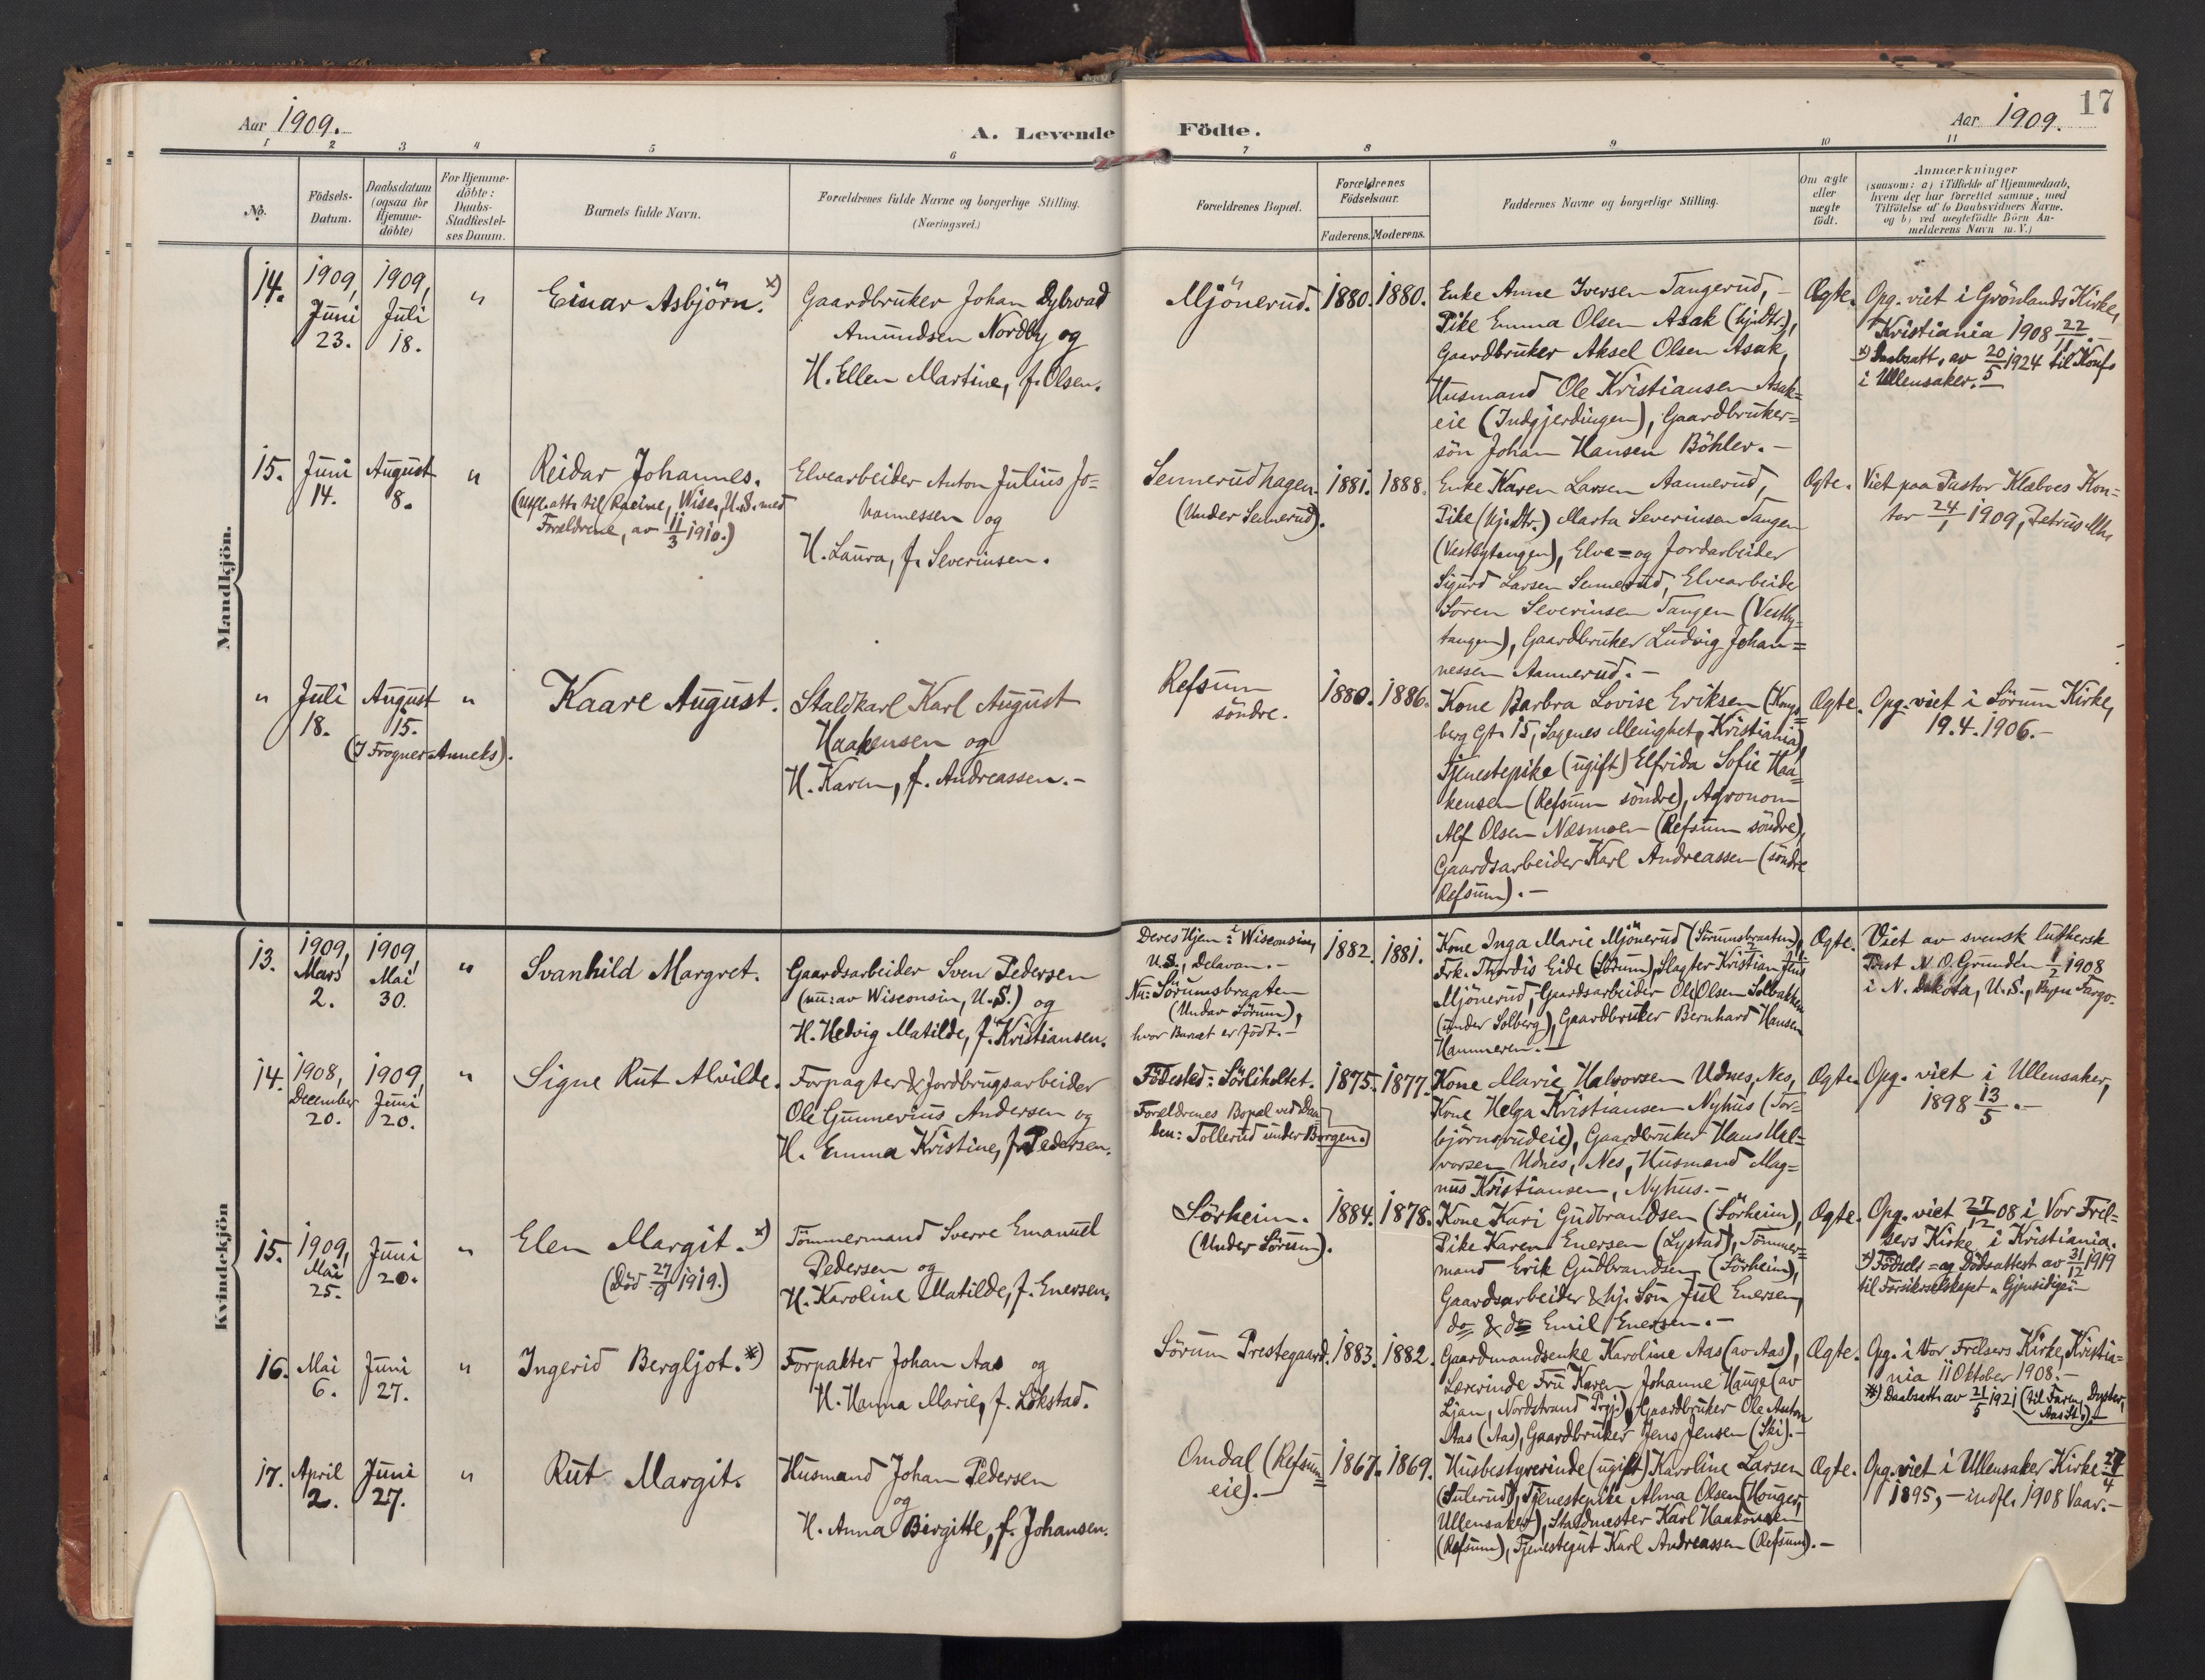 Aar 1909.
A. Levende Födte.
Aar 1909.
17
1 2 3 4 5 6 7 8 9 10 11
No.
Födsels-
Datum.
Daabsdatum
(ogsaa for
Hjemme-
döbte)
For Hjemme-
döbte:
Daabs-
Stadfæstel-
ses Datum.
Barnets fulde Navn.
Forældrenes fulde Navne og borgerlige Stilling.
(Næringsvei.)
Forældrenes Bopæl.
Forældrenes
Födselsaar.
Faderens. Moderens.
Faddernes Navne og borgerlige Stilling.
Om ægte
eller
uægte
födt.
Anmærkninger
(saasom: a) i Tilfælde af Hjemmedaab,
hvem der har forrettet samme, med
Tilföielse af to Daabsvidners Navne.
og b) ved uegtefödte Börn An-
melderens Navn m. V.)
Mandkjön.
14.
1909,
Juni
23.
1909,
Juli
18.
"
Einar Asbjörn. *)
Gaardbruker Johan Dybwad
Amundsen Nordby og
H. Ellen Martine, f. Olsen.
Mjönerud.
1880. 1880.
Enke Anne Iversen Tangerud, -
Pike Emma Olsen Asak (hj. Dtr.),
Gaardbruker Aksel Olsen Asak,
Husmand Ole Kristiansen Asak=
eie (Indgjerdingen), Gaardbruker=
sön Johan Hansen Böhler. -
Ægte.
Opg. viet i Grönlands Kirke,
Kristiania 1908 22/11. -
*) Daabsatt. av 20/5 1924 til Konf.
i Ullensaker. -
15.
Juni
14.
August
8.
"
Reidar Johannes.
(Utfl.att. til Racine, Wisc., U.S. med
Forældrene, av 11/3 1910.)
Elvearbeider Anton Julius Jo=
hannessen og
H. Laura, f. Severinsen.
Sennerudhagen.
(Under Sennerud).
1881. 1888.
Enke Karen Larsen Aannerud,
Pike (hj. Dtr.) Marta Severinsen Tangen
(Vestbytangen), Elve= og Jordarbeider
Sigurd Larsen Sennerud, Elvearbeide
Sören Severinsen Tangen (Vestby-
tangen), Gaardbruker Ludvig Johan=
nessen Aannerud. -
Ægte.
Viet paa Pastor Klæboes Kon=
tor 24/1 1909, Petrus
"
Juli
18.
August
15.
(I Frogner Anneks).
"
Kaare August.
Staldkarl Karl August
Haakensen og
H. Karen, f. Andreassen. -
Refsum
söndre.
1880. 1886.
Kone Barbra Lovise Eriksen (Kongs=
berg Gt. 15, Sagenes Menighet, Kristiania),
Tjenestepike (ugift) Elfrida Sofie Haa=
kensen (Refsum söndre), Agronom
Alf Olsen Næsmoen (Refsum söndre),
Gaardsarbeider Karl Andreassen (söndre
Refsum). -
Ægte.
Opg. viet i Sörum Kirke,
19.4.1906. -
Kvindekjön
13.
1909,
Mars
2.
1909,
Mai
30.
"
Svanhild Margret.
Gaardsarbeider Sven Pedersen
(nu: av Wisconsin, U.S.) og
H. Hedvig Matilde, f. Kristiansen.
Deres Hjem i Wisconsin,
U.S., Delavan. -
Nu: Sörumsbraaten
(Under Sörum),
hvor Barnet er födt. -
1882. 1881.
Kone Inga Marie Mjönerud (Sörumsbraaten),
Frk. Thordis Eide (Sörum), Slagter Kristian Juul
Mjönerud, Gaardsarbeider Ole Olsen Solbakken
(under Solberg), Gaardbruker Bernhard Hansen
Hammeren. -
Ægte.
Viet av svensk luthersk
Prest N. O. Grunden 1/2 1908
i N. Dakota, U.S., Byen Fargo.
14.
1908,
December
20.
1909,
Juni
20.
"
Signe Rut Alvilde.
Forpagter & Jordbrugsarbeider
Ole Gunnerius Andersen og
H. Emma Kristine, f. Pedersen.
Födested: Sörliholtet.
Forældrenes Bopæl ved Daa-
ben: Tollerud under Borgen.
1875. 1877.
Kone Marie Halvorsen Udnes, Nes,
Kone Helga Kristiansen Nyhus (Tor=
björnsrudeie), Gaardbruker Hans Hal=
vorsen Udnes, Nes, Husmand Mag=
nus Kristiansen, Nyhus. -
Ægte.
Opg. viet i Ullensaker,
1898 13/5. -
15.
1909,
Mai
25.
Juni
20.
"
Elen Margit. *)
(Död 27/9 1919.)
Tömmermand Sverre Emanuel
Pedersen og
H. Karoline Matilde, f. Enersen.
Sörheim.
(Under Sörum).
1884. 1878.
Kone Kari Gudbrandsen (Sörheim),
Pike Karen Enersen (Lystad), Tömmer=
mand Erik Gudbrandsen (Sörheim),
Gaardsarbeider & hj. Sön Juel Enersen,
do & do Emil Enersen. -
Ægte.
Opg. viet 27/12 08 i Vor Frel=
sers Kirke i Kristiania.
*) Födsels= og Dödsattest av 31/12 1919
til Forsikrselskapet "Gjensidige" -
16.
Mai
6.
Juni
27.
"
Ingerid Bergljot. *)
Forpakter Johan Aas og
H. Hanna Marie, f. Lökstad.
Sörum Prestegaard.
1883. 1882.
Gaardmandsenke Karoline Aas (av Aas),
Lærerinde Fru Karen Johanne Hauge (av
Ljan, Nordstrand Prgj.), Gaardbruker Ole Anton
Aas (Aas), Gaardbruker Jens Jensen (Ski). -
Ægte.
Opg. i Vor Frelsers Kirke, Kristia=
nia 11 Oktober 1908. -
*) Daabsatt. av 21/5 1921 (til Farm, Dyster,
Aas St.). -
17.
April
2.
Juni
27.
"
Rut Margit.
Husmand Johan Pedersen
og
H. Anna Birgitte, f. Johansen.
Omdal (Refsum=
eie). -
1867. 1869.
Husbestyrerinde (ugift) Karoline Larsen
(Sulerud), Tjenestepike Alma Olsen (Houger,
Ullensaker), Staldmester Karl Haakonsen
(Refsum), Tjenestegut Karl Andreassen (Refsum). -
Ægte.
Opg. viet i Ullensaker Kirke 27/4
1895, - indfl. 1908 Vaar. -